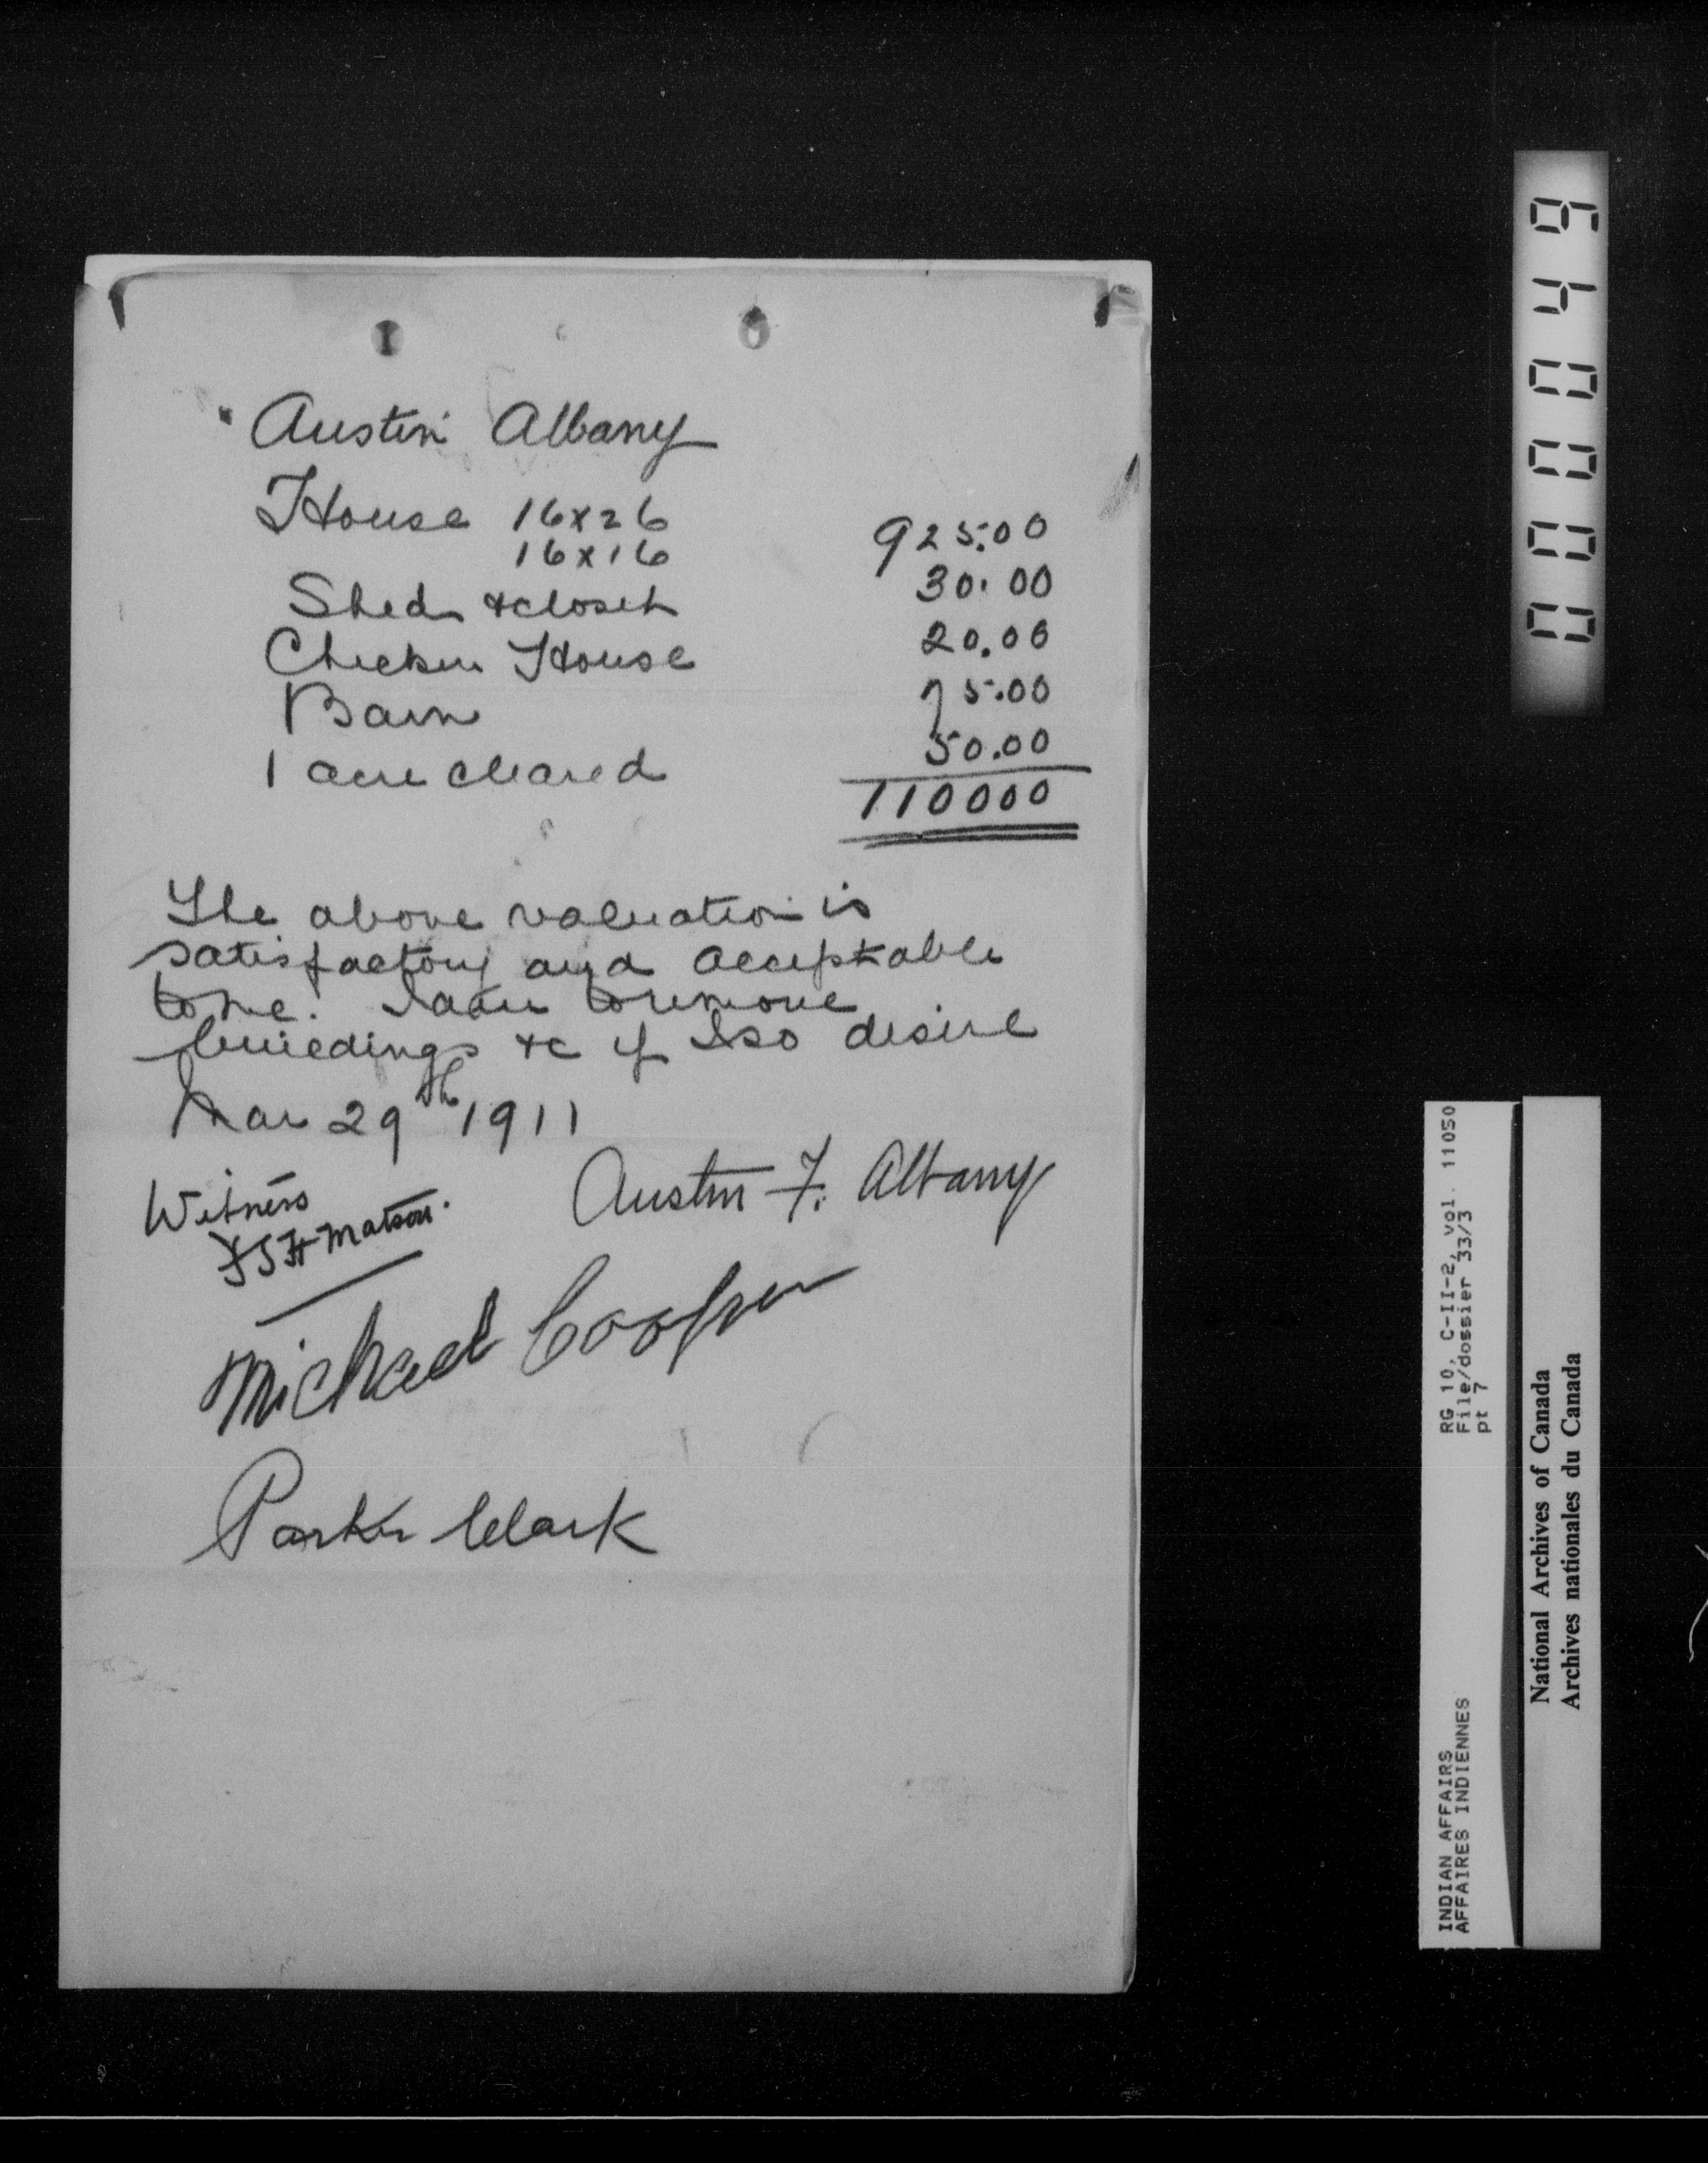 Austin Albany
House 16x26
16x16 925.00
Shed & closet 30.00
Chicken House 20.00
Barn 75.00
1 acre cleared 50.00
110000
The above valuation is
satisfactory and acceptable
to me. I am to remove
buildings &c if I so desire
Mar 29th 1911
Witness Austin F. Albany
Matson.
Michael Cooper
Parker Clark
000049
RG 10, C-II-2, vol. 11050
File/dossier 33/3
pt 7
INDIAN AFFAIRS
AFFAIRES INDIENNES
National Archives of Canada
Archives nationales du Canada